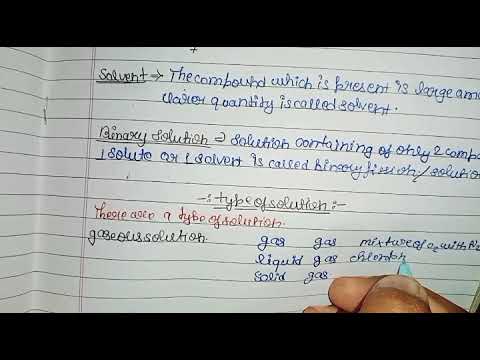 Solvent → The compound which is present is large amo
quantity is called solvent.
Binary solution ⇒ solution containing of only 2 compo
1 solute or 1 solvent is called binary / solution
-: type of solution :-
There are a type of solution.
gaseous solution gas gas mixture of O2 with N2
liquid gas chlorop
solid gas